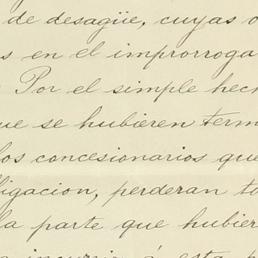 de desagüe, cuyas o
s en el improrroga
Por el simple hech
ue se hubieren term
los concesionarios que
ligacion, perderan to
la parte que hubier
incurrir á esta